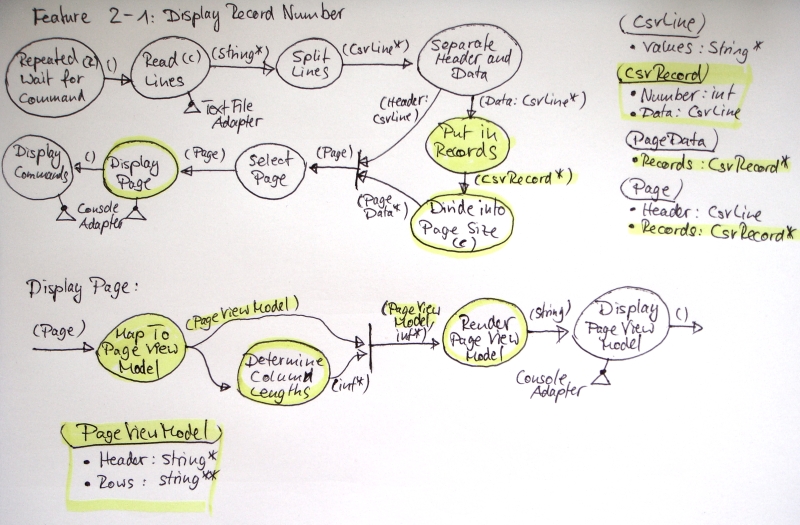 Feature 2-1: Display Record Number
Repeated (e)
Wait for
Command
()
Read (c)
Lines
(String*)
Split
Lines
(CsvLine*)
Separate
Header and
Data
Text File
Adapter
(Header:
CsvLine)
(Data: CsvLine*)
Put in
Records
(CsvRecord*)
Divide into
Page Size
(e)
(Page
Data*)
(Page)
Select
Page
(Page)
Display
Page
()
Display
Commands
Console
Adapter
(CsvLine)
• Values: String*
(CsvRecord)
• Number: int
• Data: CsvLine
(PageData)
• Records: CsvRecord*
(Page)
• Header: CsvLine
• Records: CsvRecord*
Display Page:
(Page)
Map To
Page View
Model
(PageViewModel)
Determine
Column
Lengths
(int*)
(PageView
Model,
int*)
Render
Page View
Model
(String)
Display
Page View
Model
()
Console
Adapter
(PageViewModel)
• Header: string*
• Rows: string**